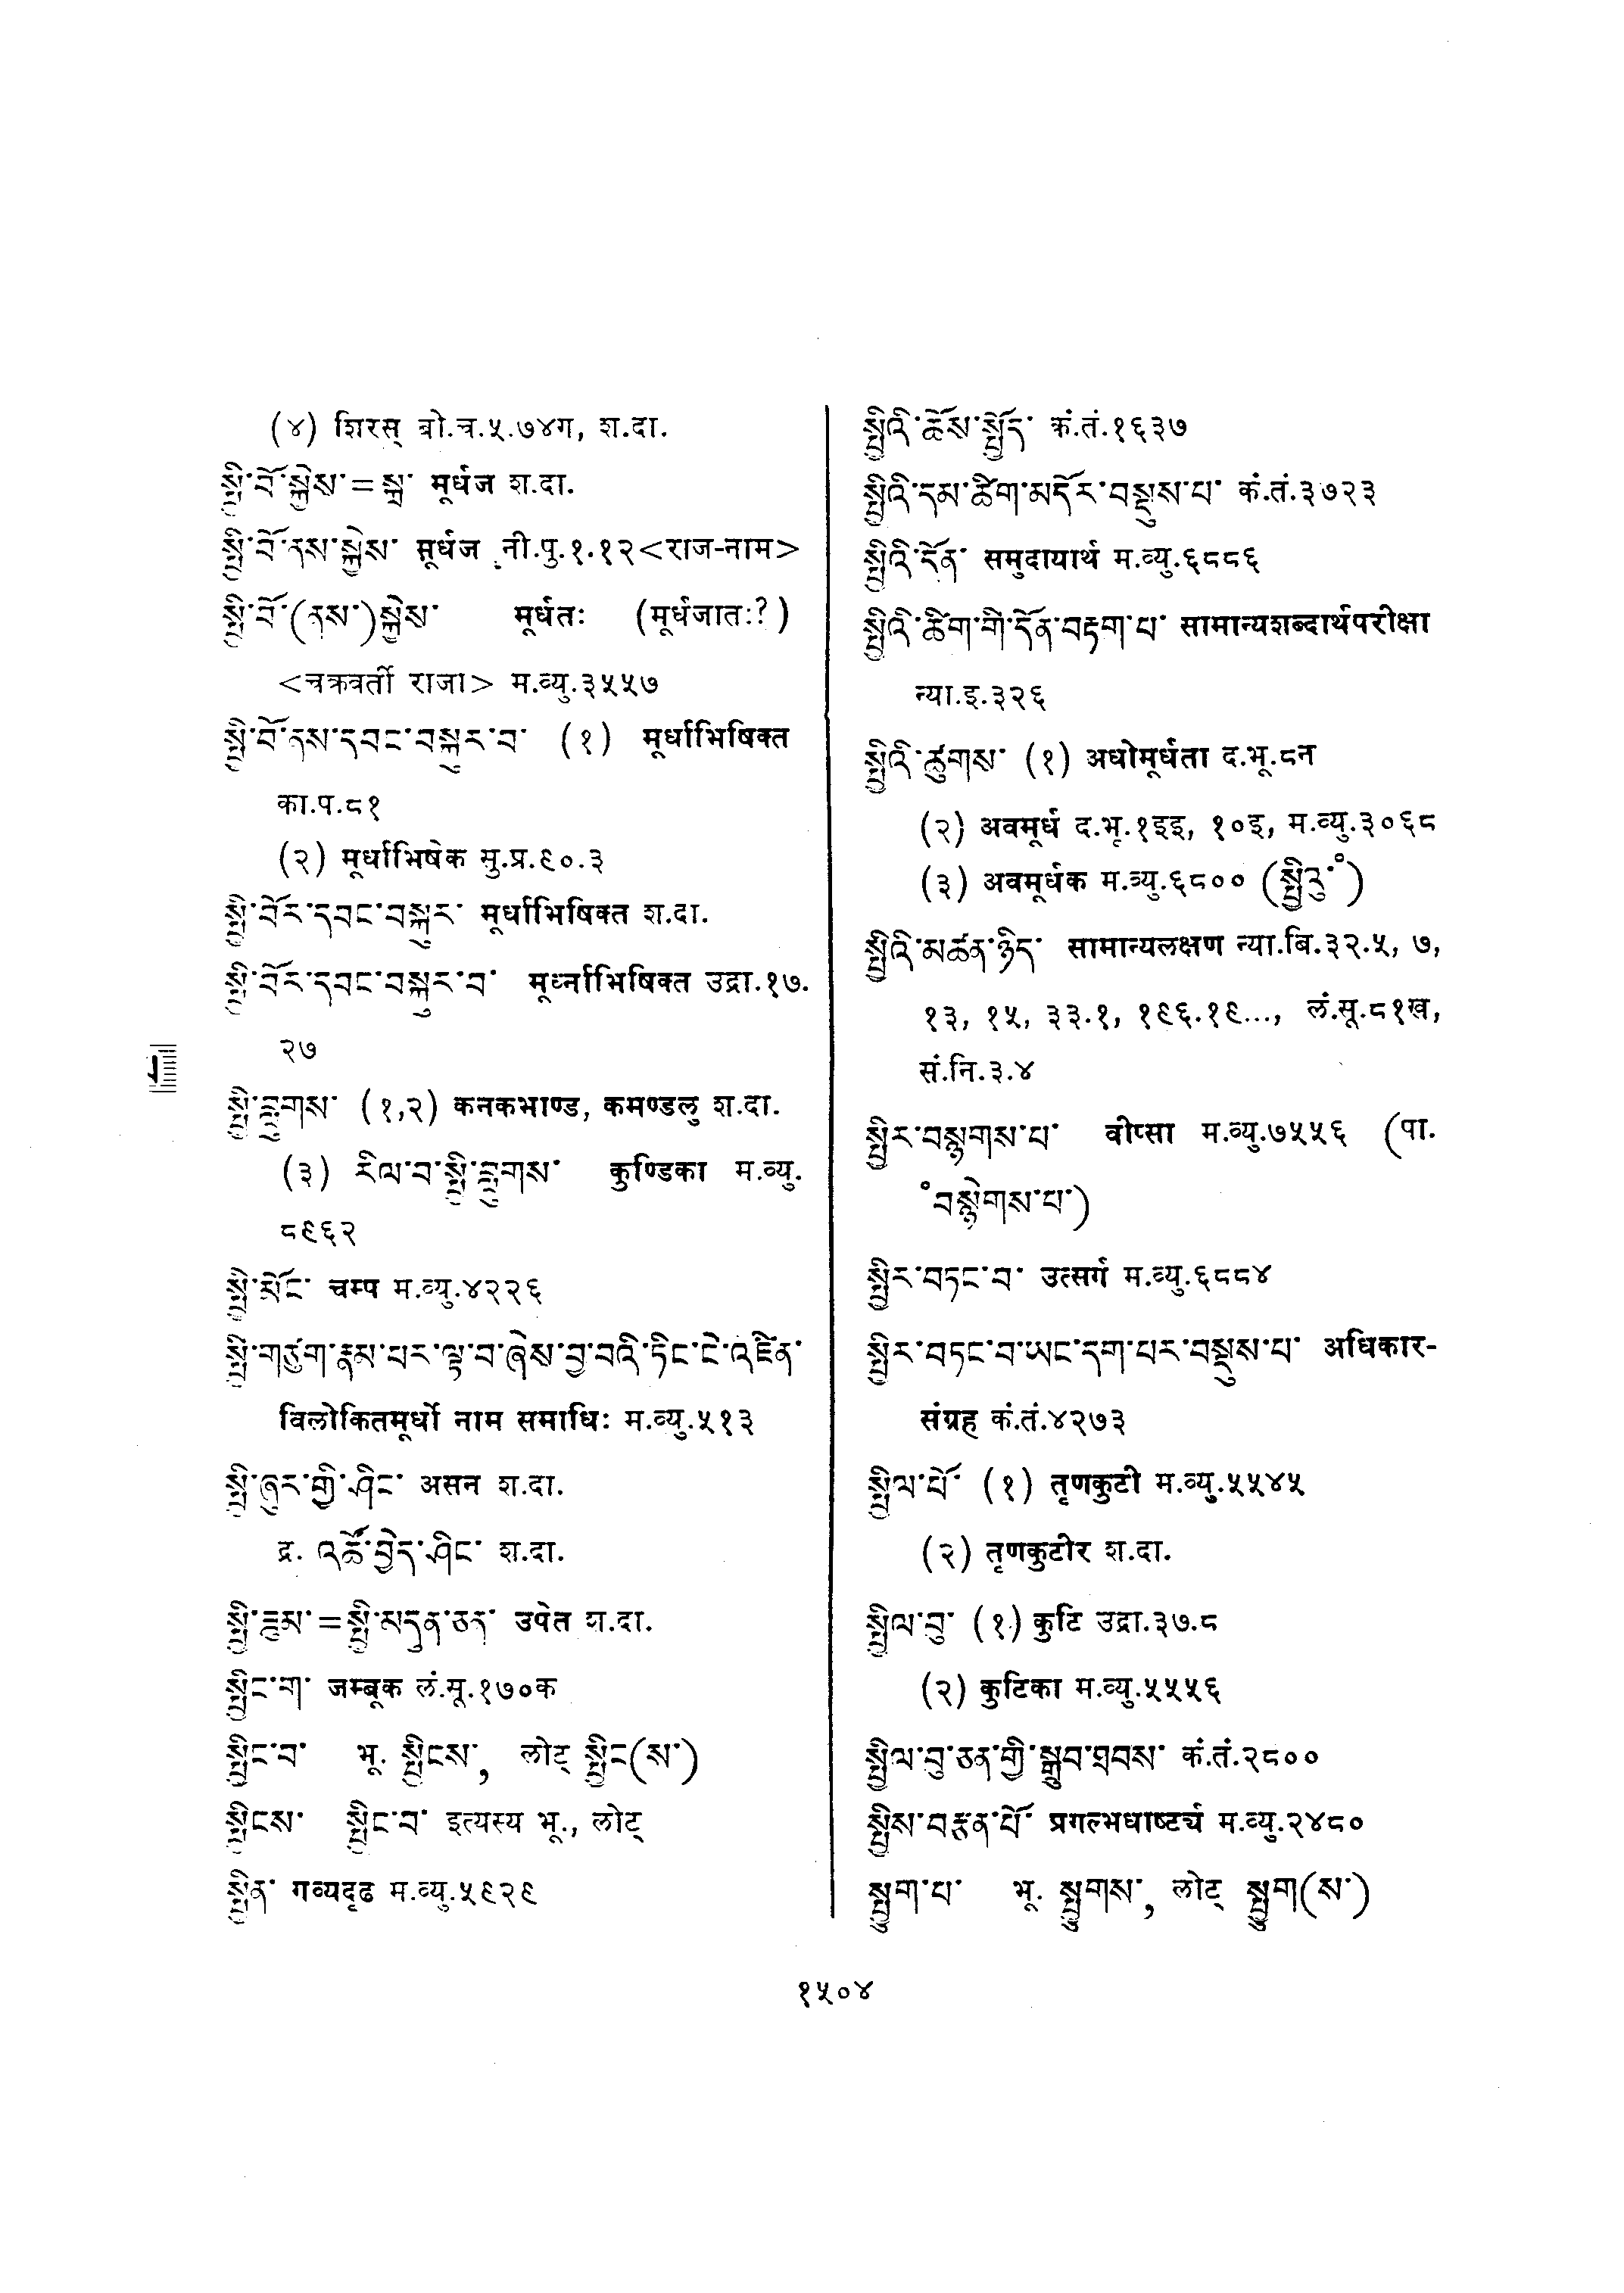 (४) शिरस् बो.च.५.७४ग, श.दा.
སྤྱི་བོ་སྐྱེས་=སྐྲ་ मूर्धज श.दा.
སྤྱི་བོ་ནས་སྐྱེས་ मूर्धज नी.पु.१.१२<राज-नाम>
སྤྱི་བོ་(ནས་)སྐྱེས་ मूर्धतः (मूर्धजातः?)
<चक्रवर्ती राजा> म.व्यु.३५५७
སྤྱི་བོ་ནས་དབང་བསྐུར་བ་ (१) मूर्धाभिषिक्त
का.प.८१
(२) मूर्धाभिषेक सु.प्र.९०.३
སྤྱི་བོར་དབང་བསྐུར་ मूर्धाभिषिक्त श.दा.
སྤྱི་བོར་དབང་བསྐུར་བ་ मूर्ध्नाभिषिक्त उद्रा.१७.
२७
སྤྱི་བླུགས་ (१,२) कनकभाण्ड, कमण्डलु श.दा.
(३) རིལ་བ་སྤྱི་བླུགས་ कुण्डिका म.व्यु.
८९६२
སྤྱི་མོང་ चम्प म.व्यु.४२२६
སྤྱི་གཙུག་རྣམ་པར་ལྟ་བ་ཞེས་བྱ་བའི་ཏིང་ངེ་འཛིན་
विलोकितमूर्धो नाम समाधिः म.व्यु.५१३
སྤྱི་ཞུར་གྱི་ཤིང་ असन श.दा.
द्र. འཚོ་བྱེད་ཤིང་ श.दा.
སྤྱི་ཟམ་=སྤྱི་མདུན་ཅན་ उपेत श.दा.
སྤྱིང་ག་ जम्बूक लं.सू.१७०क
སྤྱིང་བ་ भू. སྤྱིངས་, लोट् སྤྱིང(ས་)
སྤྱིངས་ སྤྱིང་བ་ इत्यस्य भू., लोट्
སྤྱིན་ गव्यदृढ म.व्यु.५९२९
སྤྱིའི་ཆོས་སྤྱོད་ कं.तं.१६३७
སྤྱིའི་དམ་ཚིག་མདོར་བསྡུས་པ་ कं.तं.३७२३
སྤྱིའི་དོན་ समुदायार्थ म.व्यु.६८८६
སྤྱིའི་ཚིག་གི་དོན་བརྟག་པ་ सामान्यशब्दार्थपरीक्षा
न्या.इ.३२६
སྤྱིའི་ཚུགས་ (१) अधोमूर्धता द.भू.८न
(२) अवमूर्ध द.भू.१इइ, १०इ, म.व्यु.३०६८
(३) अवमूर्धक म.व्यु.६८०० (སྤྱིའུ་॰)
སྤྱིའི་མཚན་ཉིད་ सामान्यलक्षण न्या.बि.३२.५, ७,
१३, १५, ३३.१, १९६.१९..., लं.सू.८१ख,
सं.नि.३.४
སྤྱིར་བསྙགས་པ་ वीप्सा म.व्यु.७५५६ (पा.
॰བསྙེགས་པ་)
སྤྱིར་བཏང་བ་ उत्सर्ग म.व्यु.६८८४
སྤྱིར་བཏང་བ་ཡང་དག་པར་བསྡུས་པ་ अधिकार-
संग्रह कं.तं.४२७३
སྤྱིལ་པོ་ (१) तृणकुटी म.व्यु.५५४५
(२) तृणकुटीर श.दा.
སྤྱིལ་བུ་ (१) कुटि उद्रा.३७.८
(२) कुटिका म.व्यु.५५५६
སྤྱིལ་བུ་ཅན་གྱི་སྒྲུབ་ཐབས་ कं.तं.२८००
སྤྱིས་བརྟན་པོ་ प्रगल्भधार्ष्ट्य म.व्यु.२४८०
སྤྱུག་པ་ भू. སྤྱུགས་, लोट् སྤྱུག(ས་)
१५०४